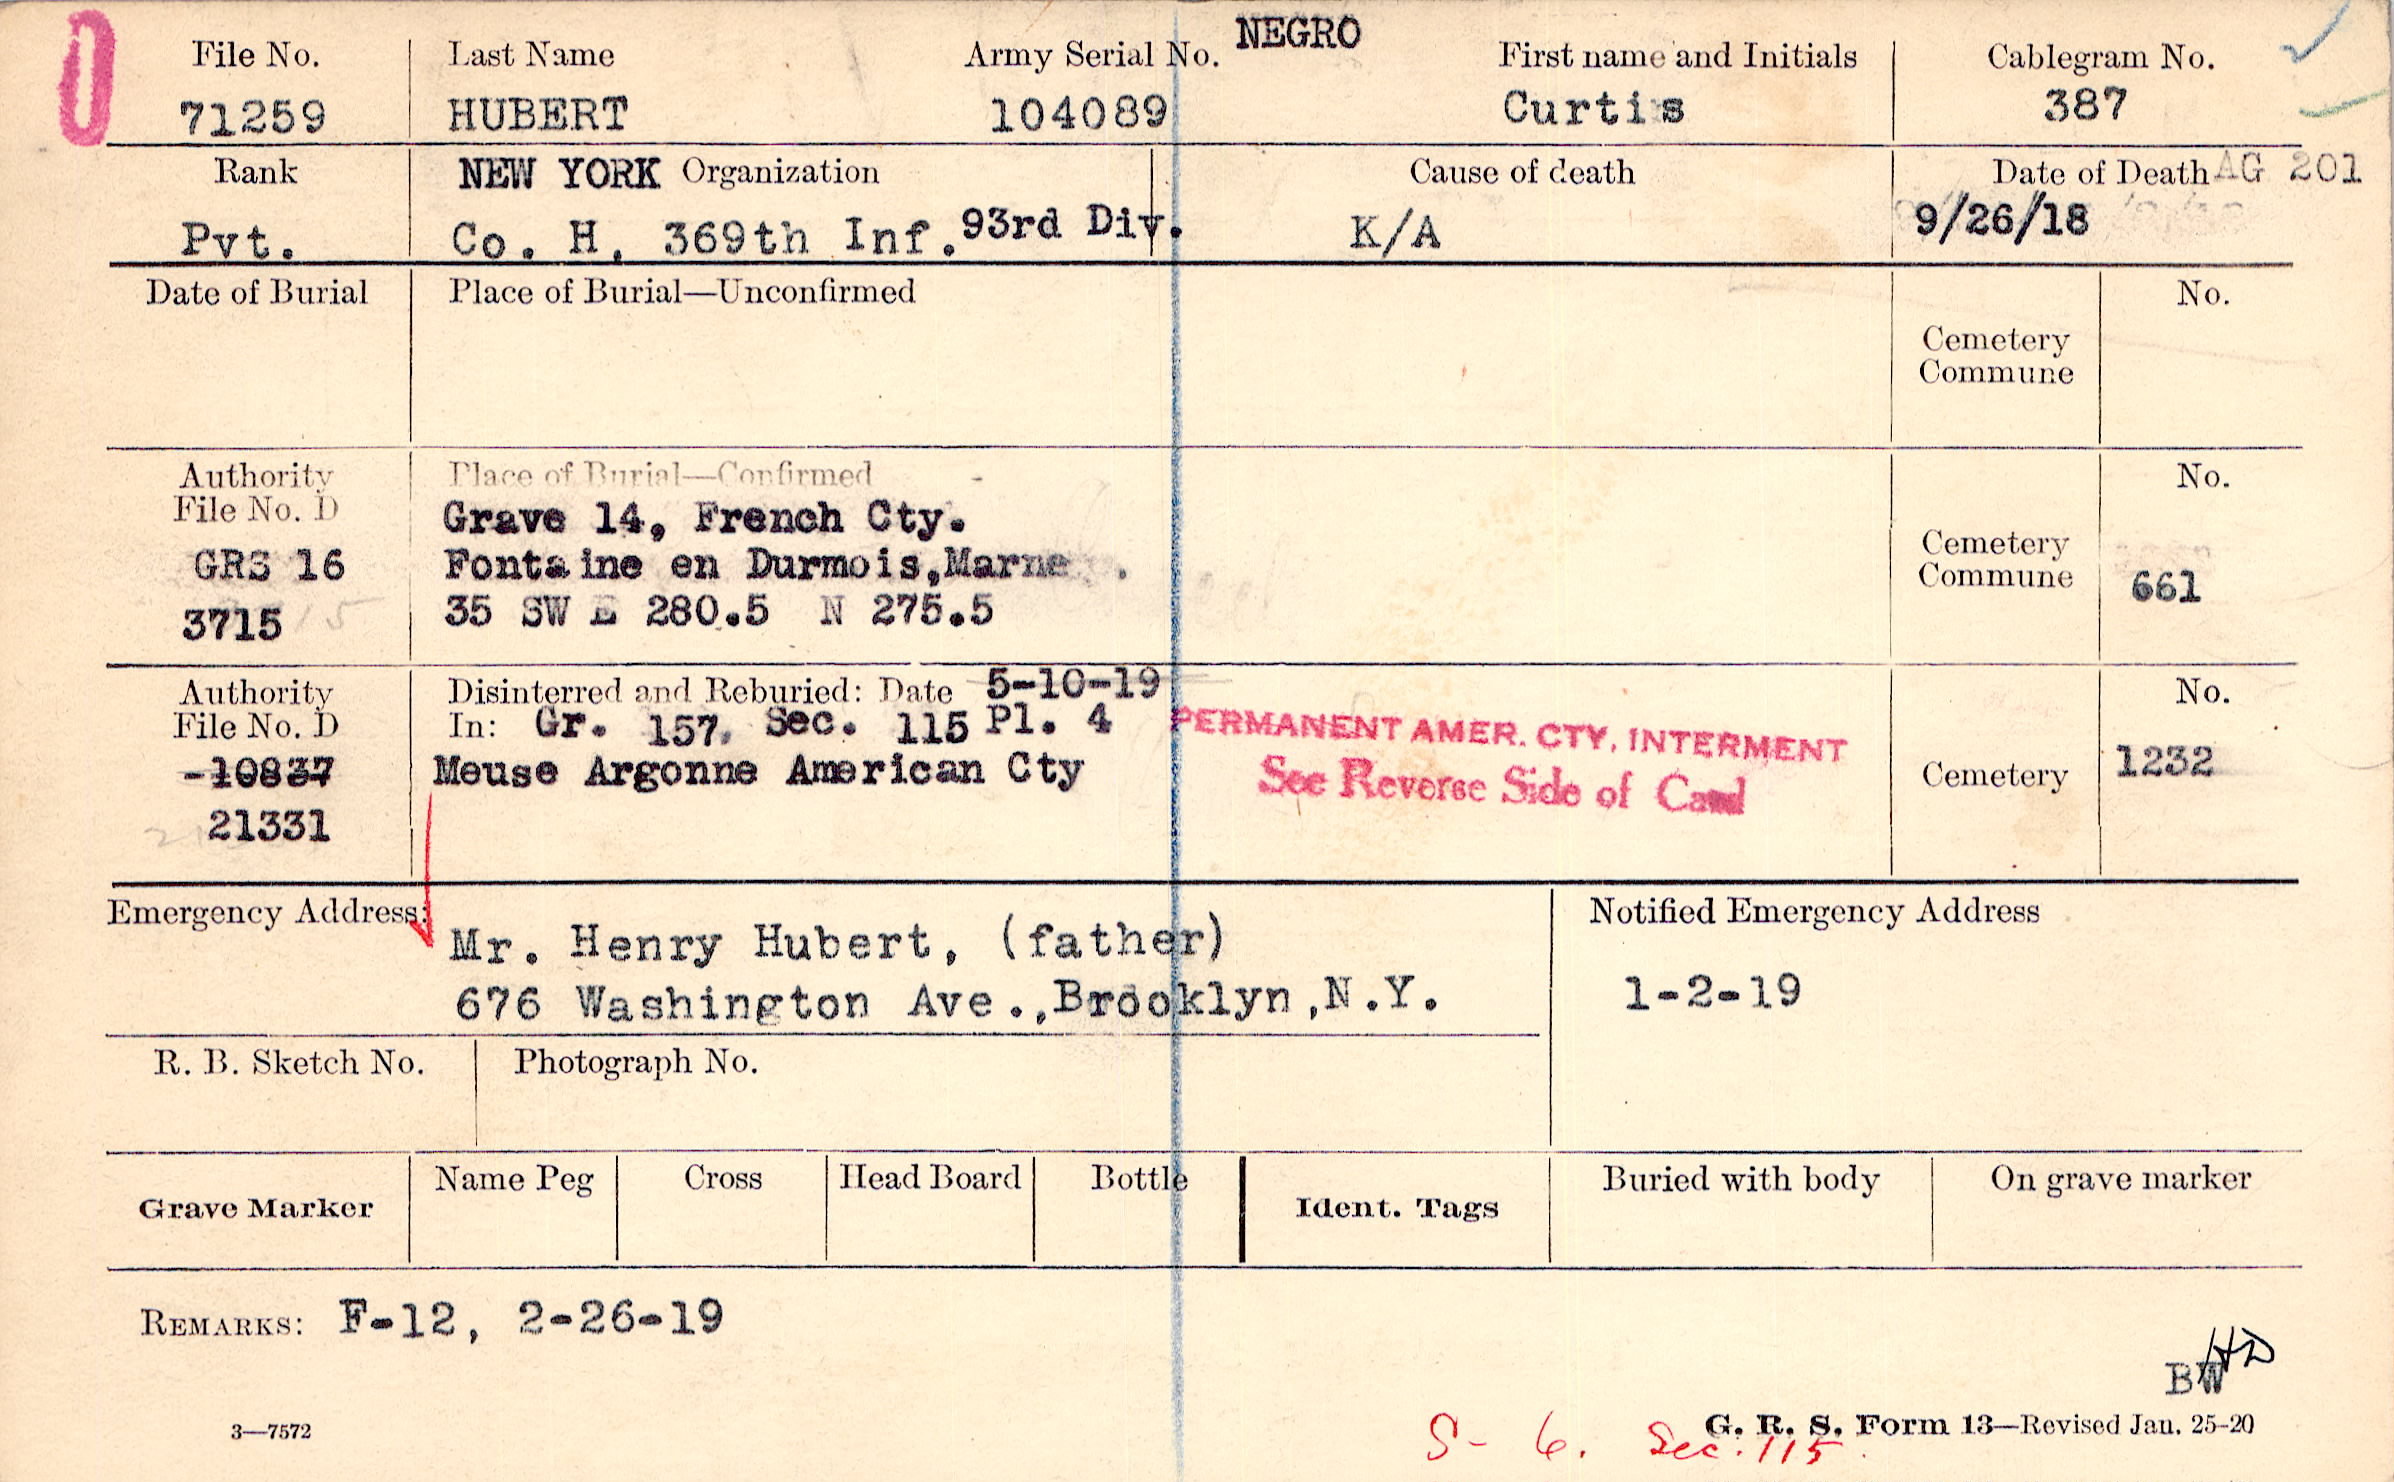 NEGRO
File No. Last Name Army Serial No. First name and Initials Cablegram No.
71259 HUBERT 104089 Curtis 387
Rank NEW YORK Organization Cause of death Date of Death AG 201
Pvt. Co. H. 369th Inf. 93rd Div. K/A 9/26/18
Date of Burial Place of Burial—Unconfirmed No.
Cemetery
Commune
Authority Place of Burial—Confirmed No.
File No. D Grave 14, French Cty.
GRS 16 Fontaine en Durmois, Marne Cemetery
Commune 661
3715 35 SW E 280.5 N 275.5
Authority Disinterred and Reburied: Date 5-10-19 No.
File No. D In: Gr. 157. Sec. 115 Pl. 4 PERMANENT AMER. CTY. INTERMENT
-10837 Meuse Argonne American Cty See Reverse Side of Card Cemetery 1232
21331
Emergency Address: Notified Emergency Address
Mr. Henry Hubert, (father)
676 Washington Ave.,Brooklyn,N.Y. 1-2-19
R. B. Sketch No. Photograph No.
Name Peg Cross Head Board Bottle Buried with body On grave marker
Grave Marker Ident. Tags
REMARKS: F-12, 2-26-19
HD
BW
3—7572 G. R. S. Form 13—Revised Jan. 25-20
S- 6. Sec. 115